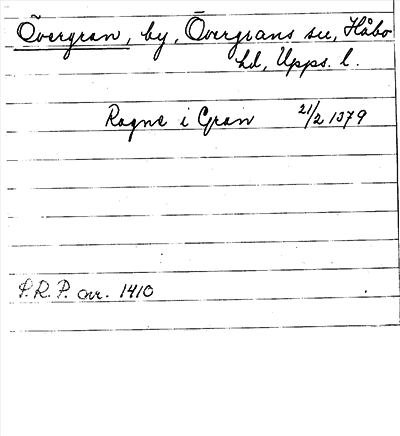 Övergran, by, Övergrans sn, Håbo
hd, Upps. l.
Ragne i Gran 21/2 1379
S.R.P. nr. 1410